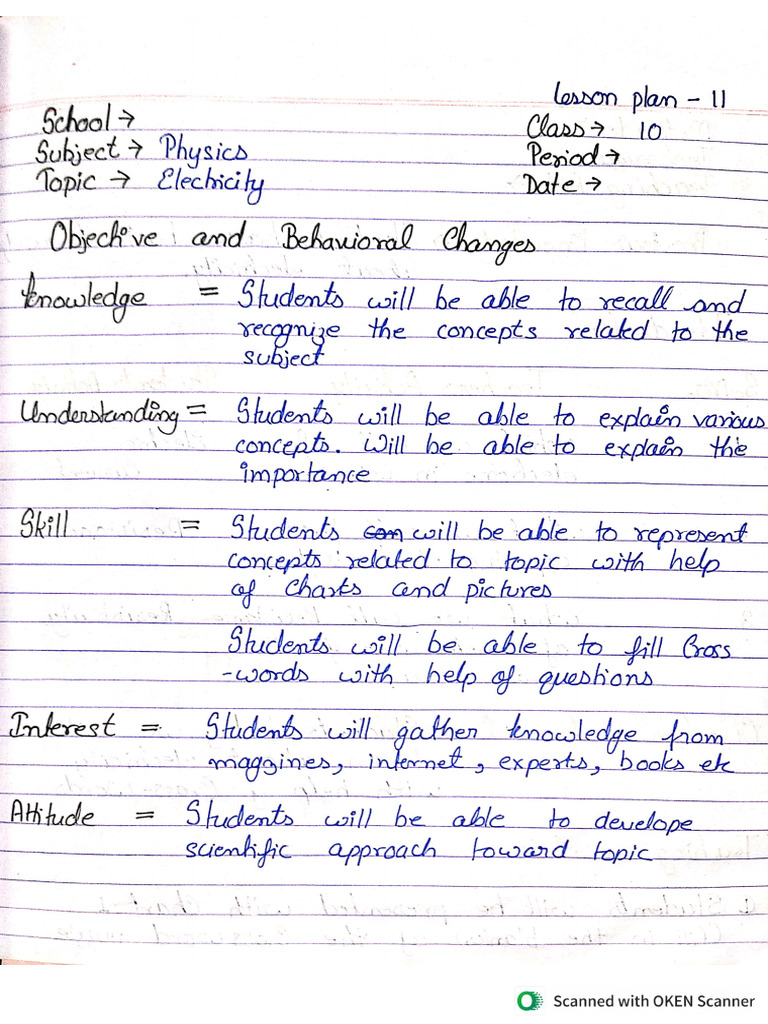 Lesson plan - 11
School →
Class → 10
Subject → Physics
Period →
Topic → Electricity
Date →
Objective and Behavioral Changes
knowledge = Students will be able to recall and
recognize the concepts related to the
subject
Understanding = Students will be able to explain various
concepts. Will be able to explain the
importance
Skill = Students can will be able to represent
concepts related to topic with help
of charts and pictures
Students will be able to fill Cross
-words with help of questions
Interest = Students will gather knowledge from
magzines, internet, experts, books etc
Attitude = Students will be able to develope
scientific approach toward topic
Scanned with OKEN Scanner